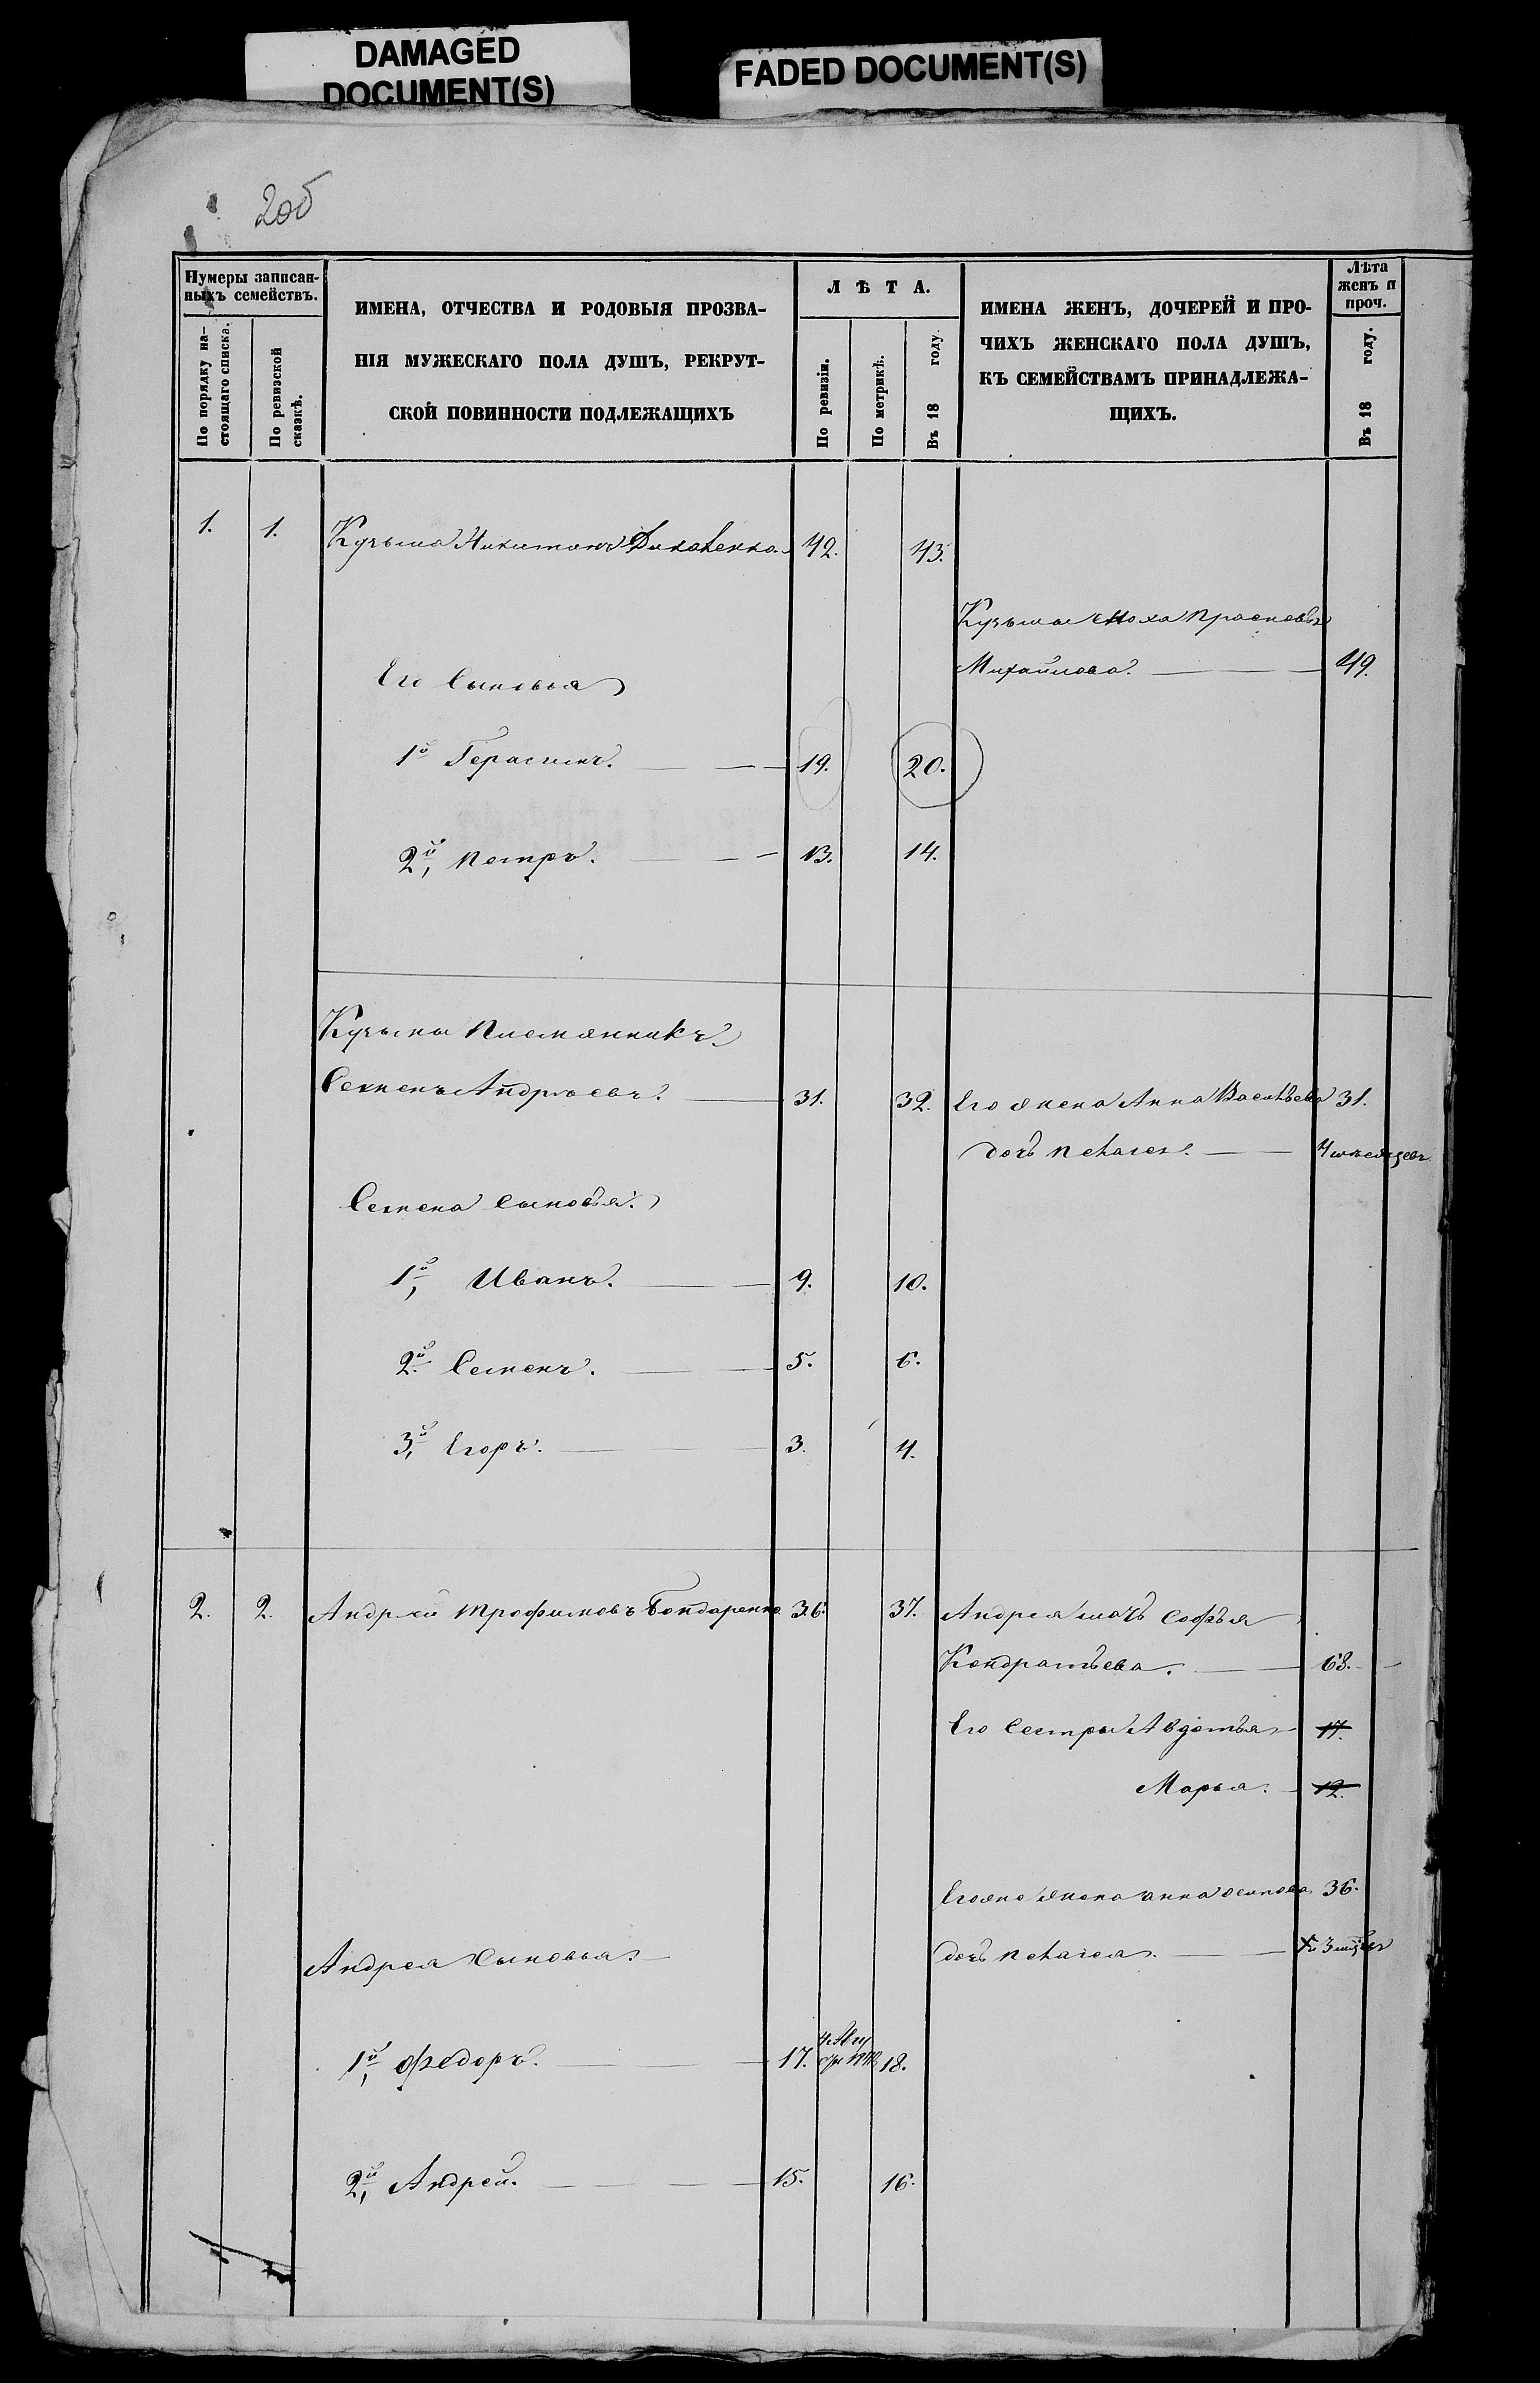 DAMAGED
DOCUMENT(S)
FADED DOCUMENT(S)
2об
Нумеры записан-
ныхъ семействъ.
По порядку на-
стоящаго списка.
По ревизской
сказкѣ.
ИМЕНА, ОТЧЕСТВА И РОДОВЫЯ ПРОЗВА-
НІЯ МУЖЕСКАГО ПОЛА ДУШЪ, РЕКРУТ-
СКОЙ ПОВИННОСТИ ПОДЛЕЖАЩИХЪ
ЛѢТА.
По ревизіи.
По метрикѣ.
Въ 18 году.
ИМЕНА ЖЕНЪ, ДОЧЕРЕЙ И ПРО-
ЧИХЪ ЖЕНСКАГО ПОЛА ДУШЪ,
КЪ СЕМЕЙСТВАМЪ ПРИНАДЛЕЖА-
ЩИХЪ.
Лѣта
женъ и
проч.
Въ 18 году.
1. 1. Кузьма Никитинъ 42. 43.
Кузьмы Прасковья
Михайлова. 49.
Его сыновья
1й Герасимъ. 19. 20.
2й, Петръ. 13. 14.
Кузьмы племянникъ
Семенъ Андреевъ. 31. 32. Его жена Анна Васильева 31.
дочь Пелагея. 4 месяцевъ
Семена сыновья:
1й, Иванъ. 9. 10.
2й Семенъ. 5. 6.
3й, Егоръ. 3. 4.
2. 2. Андрей Трофимовъ Бондаренко 36. 37. Андрея мать Софья
Кондратьева. 68.
Его сестры Авдотья 17.
Марья. 12.
Егоже жена Анна Осипова 36.
Андрея сыновья: дочь Пелагея.
1й, Федоръ. 17. 18.
2й, Андрей. 15. 16.